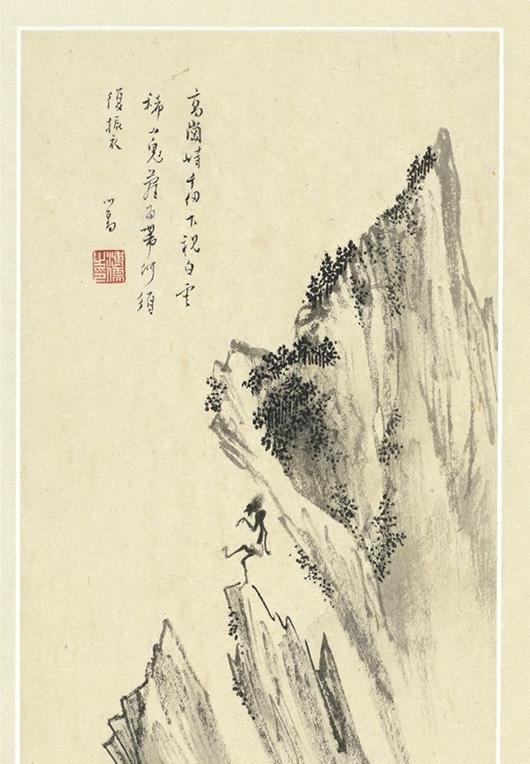 高崗峙千仞下視白雲
稀山鬼蘿為帶何須
復振衣
心畬
溥儒之印